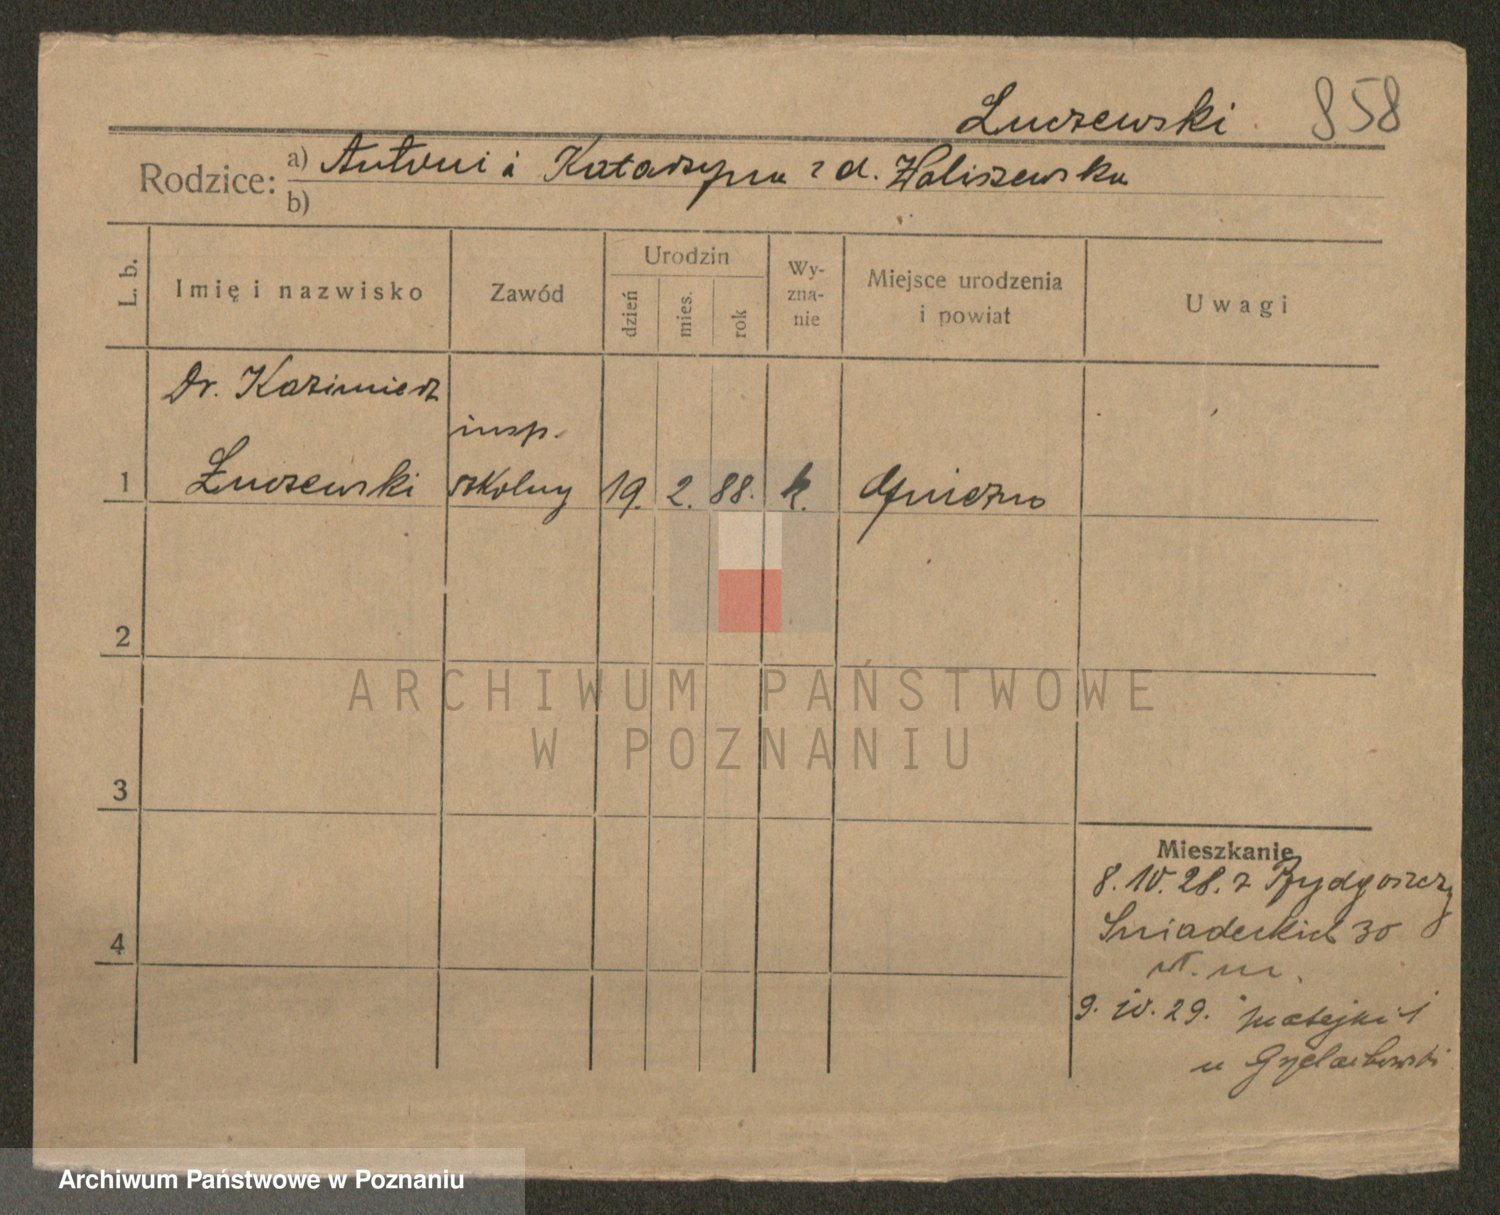 Łuczewski 858
Rodzice: a) Antoni i Katarzyna z d. Haliszewska
b)
L. b. Imię i nazwisko Zawód Urodzin dzień mies. rok Wy-zna-nie Miejsce urodzenia i powiat Uwagi
Dr. Kazimierz insp.
1 Łuczewski szkolny 19. 2. 88. k. Gniezno
2
ARCHIWUM PAŃSTWOWE
W POZNANIU
3
Mieszkanie
8. IV. 28. z Bydgoszczy
4 Sniadeckich 30
9. IV. 29. Matejki 1
u
Archiwum Państwowe w Poznaniu